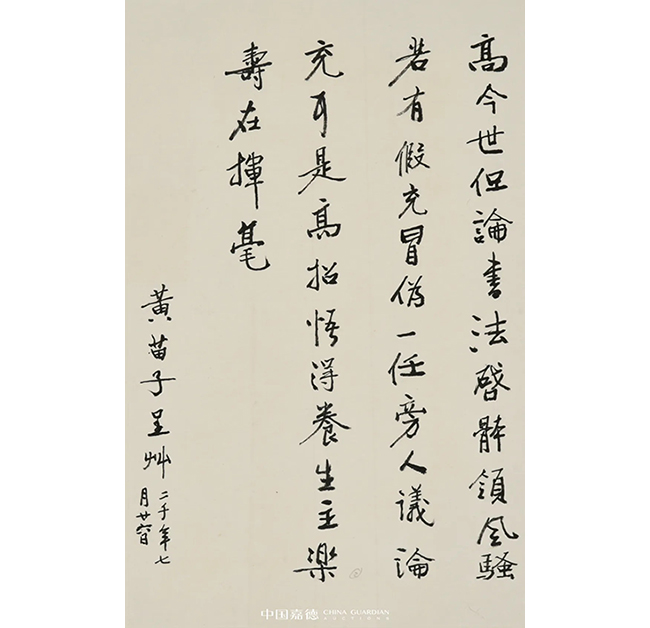 高今世但論書法啓體領風騷
若有假充冒偽一任旁人議論
充耳是高招悟得養生主樂
壽在揮毫
黃苗子呈艸
二千年七
月廿日
中国嘉德 CHINA GUARDIAN
AUCTIONS